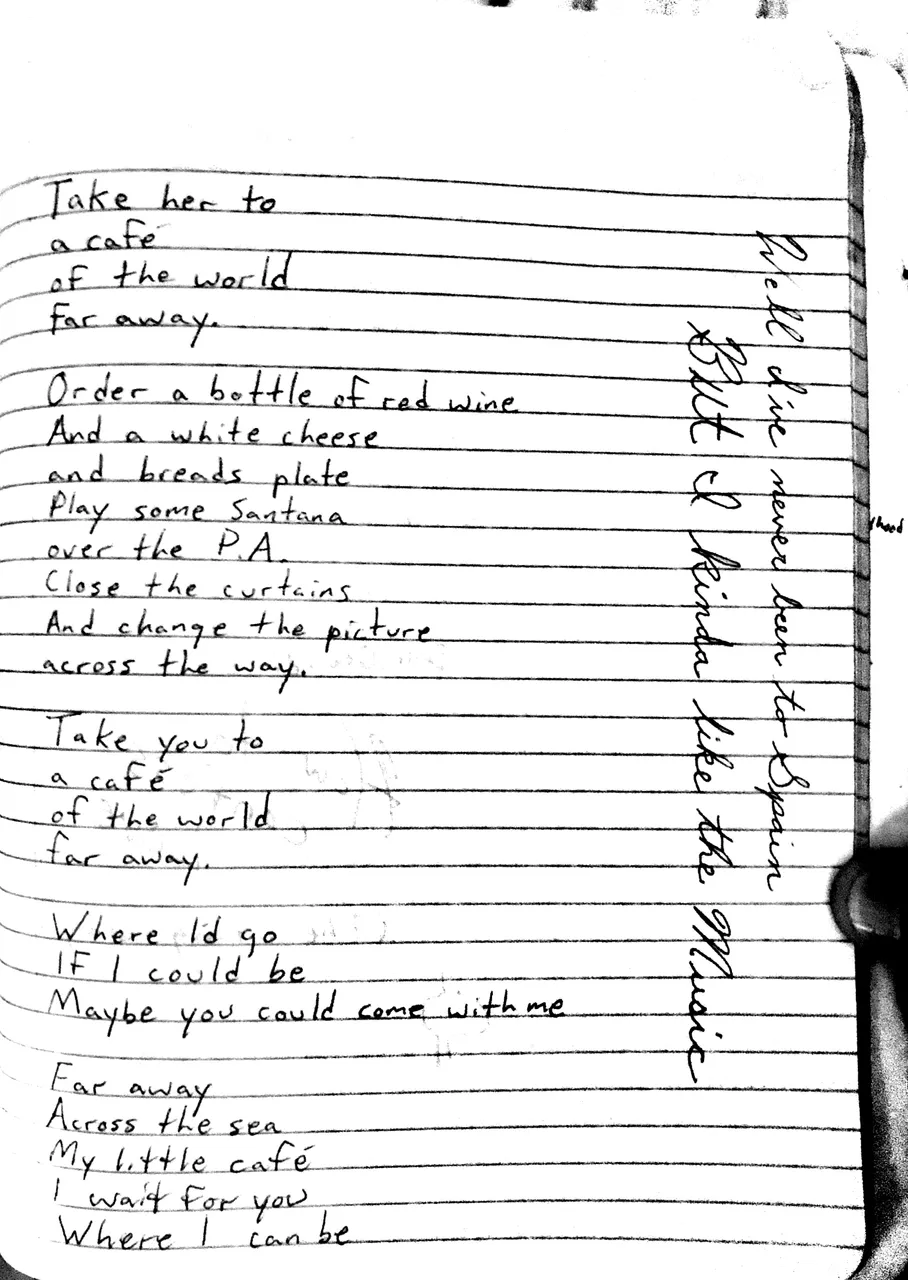 Take her to
a café
of the world
far away.
Order a bottle of red wine
And a white cheese
and breads plate
Play some Santana
over the P.A.
Close the curtains
And change the picture
across the way.
Take you to
a café
of the world
far away.
Where I'd go
If I could be
Maybe you could come with me
Far away
Across the sea
My little café
I wait for you
Where I can be
Well I've never been to Spain
But I kinda like the Music